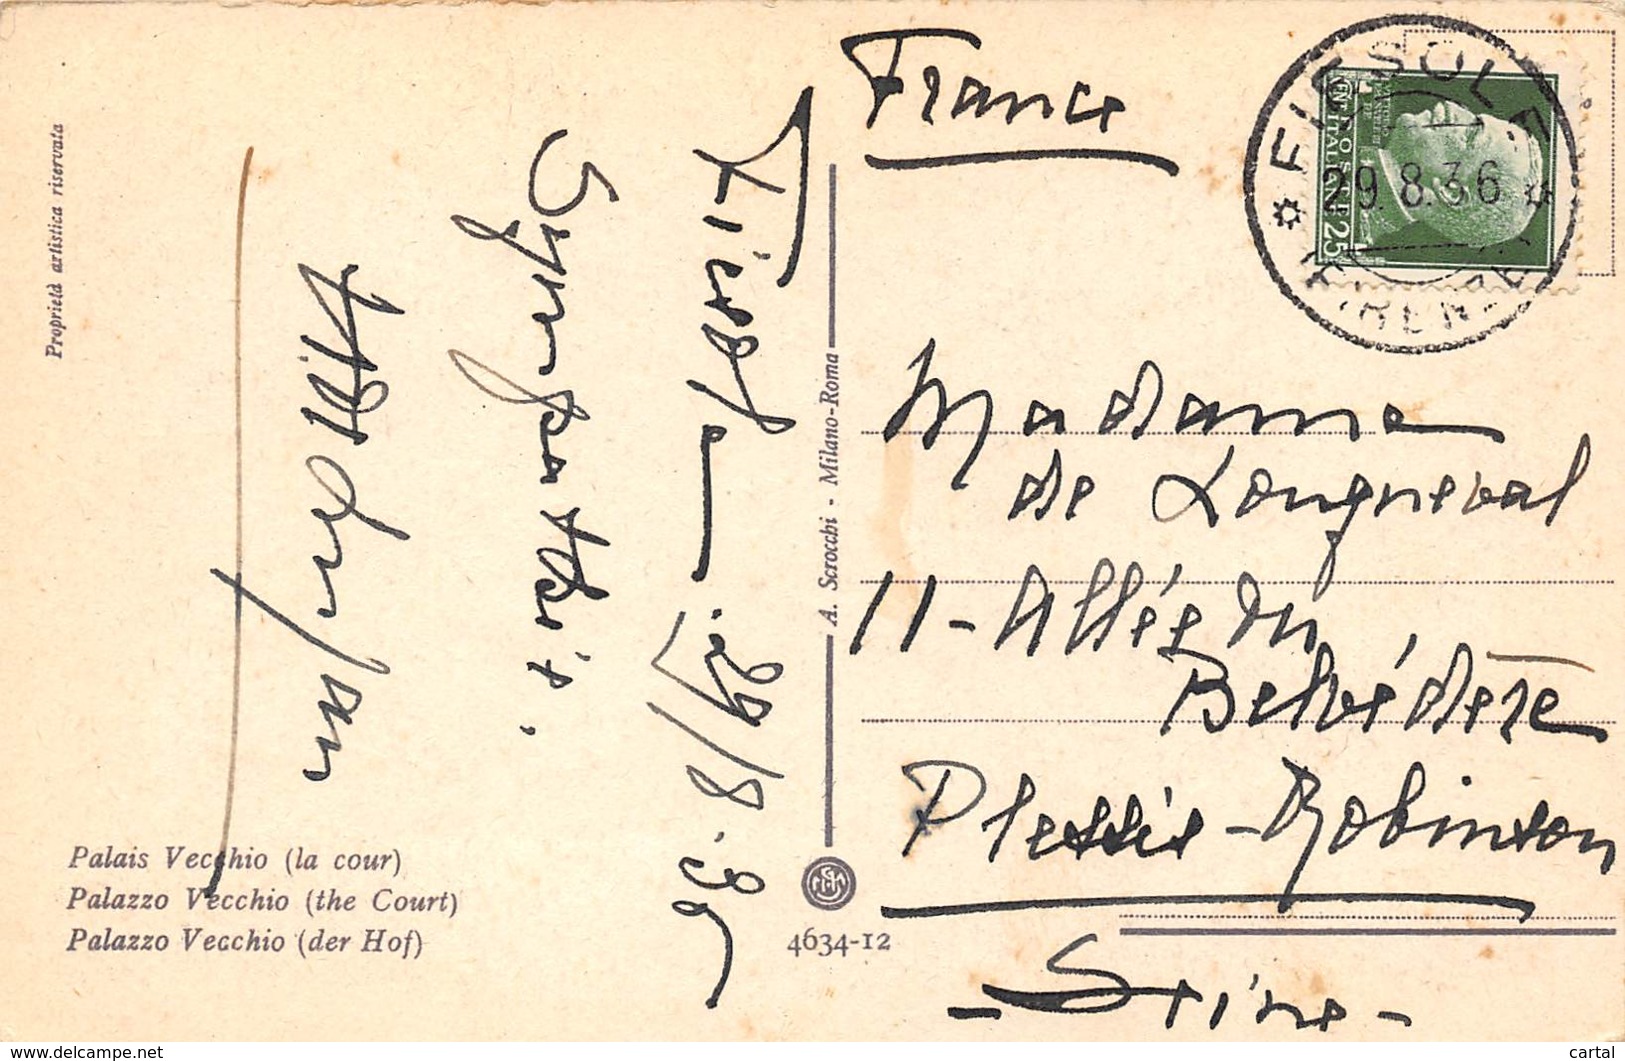 Proprietà artistica riservata
Fiesole. 29/8.36
Sympathie.
Palais Vecchio (la cour)
Palazzo Vecchio (the Court)
Palazzo Vecchio (der Hof)
A. Scrocchi - Milano-Roma
4634-12
France
FIESOLE
29.8.36
FIRENZE
ITALIANE
25
Madame
de Longneval
11 - Allée du
Belvédère
Plessis-Robinson
- Seine -
www.delcampe.net
cartal